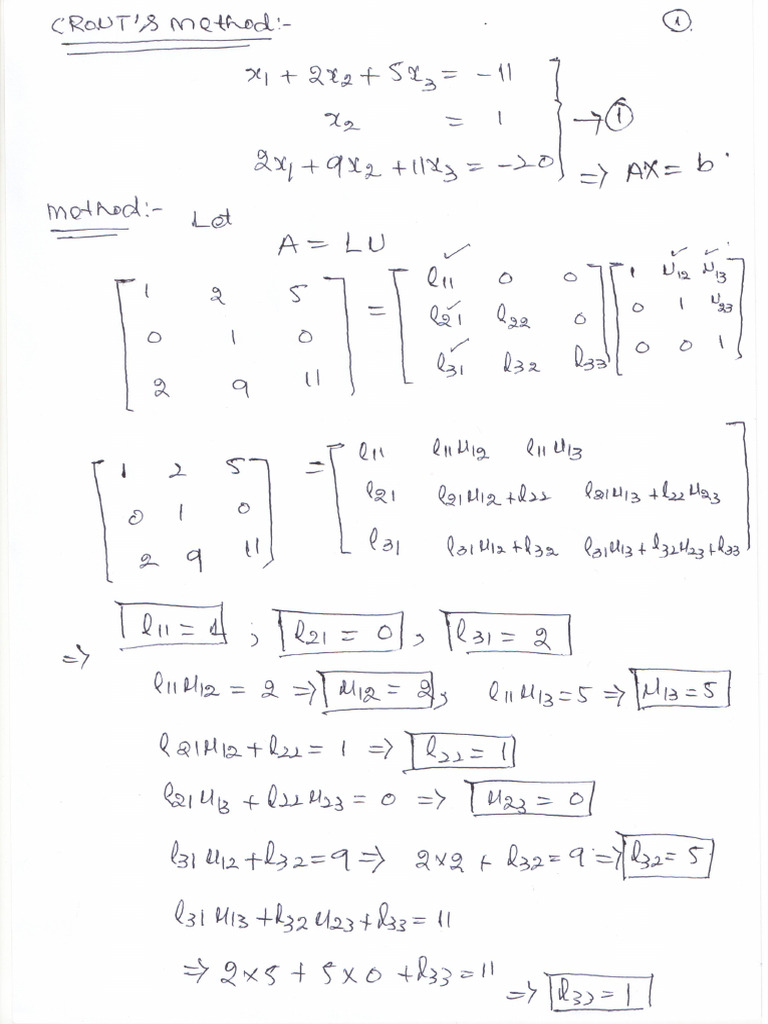 CROUT'S Method:- ①
x₁ + 2x₂ + 5x₃ = -11
x₂ = 1 → ①
2x₁ + 9x₂ + 11x₃ = -20 ⇒ AX = b.
Method:- Let
A = LU
[1 2 5; 0 1 0; 2 9 11] = [l₁₁ ✓ 0 0; l₂₁ ✓ l₂₂ 0; l₃₁ ✓ l₃₂ l₃₃] [1 u₁₂ ✓ u₁₃ ✓; 0 1 u₂₃; 0 0 1]
[1 2 5; 0 1 0; 2 9 11] = [l₁₁ l₁₁u₁₂ l₁₁u₁₃; l₂₁ l₂₁u₁₂+l₂₂ l₂₁u₁₃+l₂₂u₂₃; l₃₁ l₃₁u₁₂+l₃₂ l₃₁u₁₃+l₃₂u₂₃+l₃₃]
⇒ l₁₁ = 1 ; l₂₁ = 0 , l₃₁ = 2
l₁₁u₁₂ = 2 ⇒ u₁₂ = 2, l₁₁u₁₃ = 5 ⇒ u₁₃ = 5
l₂₁u₁₂ + l₂₂ = 1 ⇒ l₂₂ = 1
l₂₁u₁₃ + l₂₂u₂₃ = 0 ⇒ u₂₃ = 0
l₃₁u₁₂ + l₃₂ = 9 ⇒ 2×2 + l₃₂ = 9 ⇒ l₃₂ = 5
l₃₁u₁₃ + l₃₂u₂₃ + l₃₃ = 11
⇒ 2×5 + 5×0 + l₃₃ = 11 ⇒ l₃₃ = 1